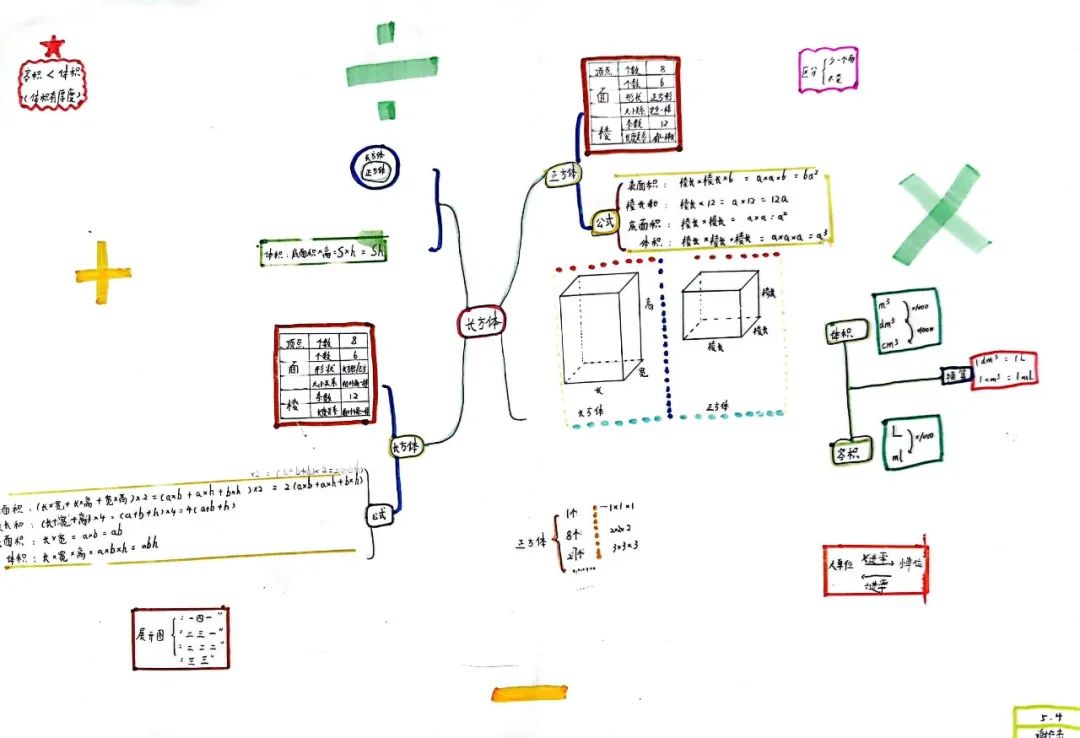 容积 < 体积
(体积有厚度)
长方体
正方体
体积:底面积×高=S×h = Sh
顶点 个数 8
面 个数 6
形状 正方形
大小关系
棱 条数 12
长度关系
正方体
公式
表面积: 棱长×棱长×6 = a×a×6 = 6a²
棱长和: 棱长×12 = a×12 = 12a
底面积: 棱长×棱长 = a×a = a²
体积: 棱长×棱长×棱长 = a×a×a = a³
区分
少一个面
长方体
高
宽
长
长方体
棱长
棱长
棱长
正方体
体积
m³
dm³
cm³
换算
1dm³ = 1L
1cm³ = 1mL
容积
L
ml
顶点 个数 8
面 个数 6
形状
大小关系
棱 条数 12
长度关系
长方体
公式
面积:(长×宽+长×高+宽×高)×2=(a×b+a×h+b×h)×2 = 2(a×b+a×h+b×h)
长和:(长+宽+高)×4=(a+b+h)×4=4(a+b+h)
面积:长×宽=a×b=ab
体积:长×宽×高=a×b×h=abh
正方体
1个 1×1×1
8个 2×2×2
27个 3×3×3
大单位 ×进率 小单位
÷进率
展开图
"一四一"
"二三一"
"二二二"
"三三"
5.4